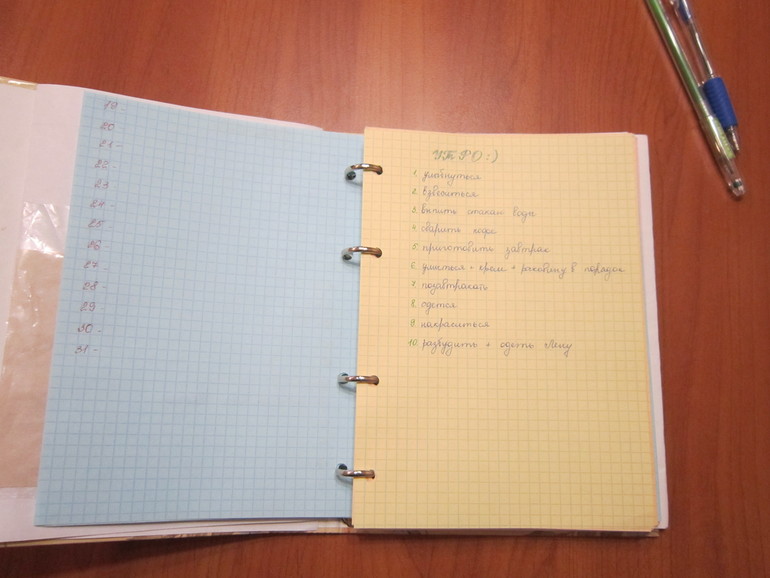 19 -
20
21 -
22 -
23
24
25
26
27 -
28 -
29
30 -
31 -
УТРО :)
1. улыбнуться
2. взвеситься
3. выпить стакан воды
4. сварить кофе
5. приготовить завтрак
6. умыться + крем + раковину в порядок
7. позавтракать
8. одется
9. накраситься
10. разбудить + одеть Лену